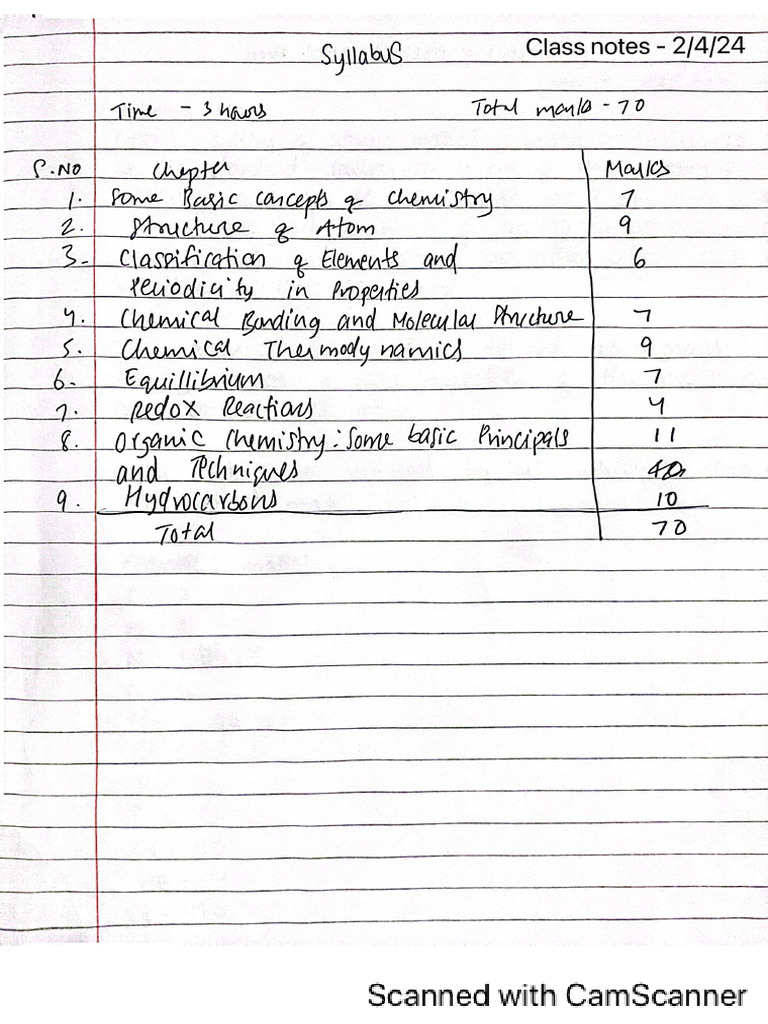 Syllabus
Class notes - 2/4/24
Time - 3 hours Total marks - 70
S.NO Chapter Marks
1. Some Basic concepts of Chemistry 7
2. Structure of Atom 9
3- Classification of Elements and 6
Periodicity in Properties
4. Chemical Bonding and Molecular Structure 7
5. Chemical Thermodynamics 9
6. Equillibrium 7
7. Redox Reactions 4
8. Organic Chemistry: Some basic Principals 11
and Techniques
9. Hydrocarbons 10
Total 70
Scanned with CamScanner